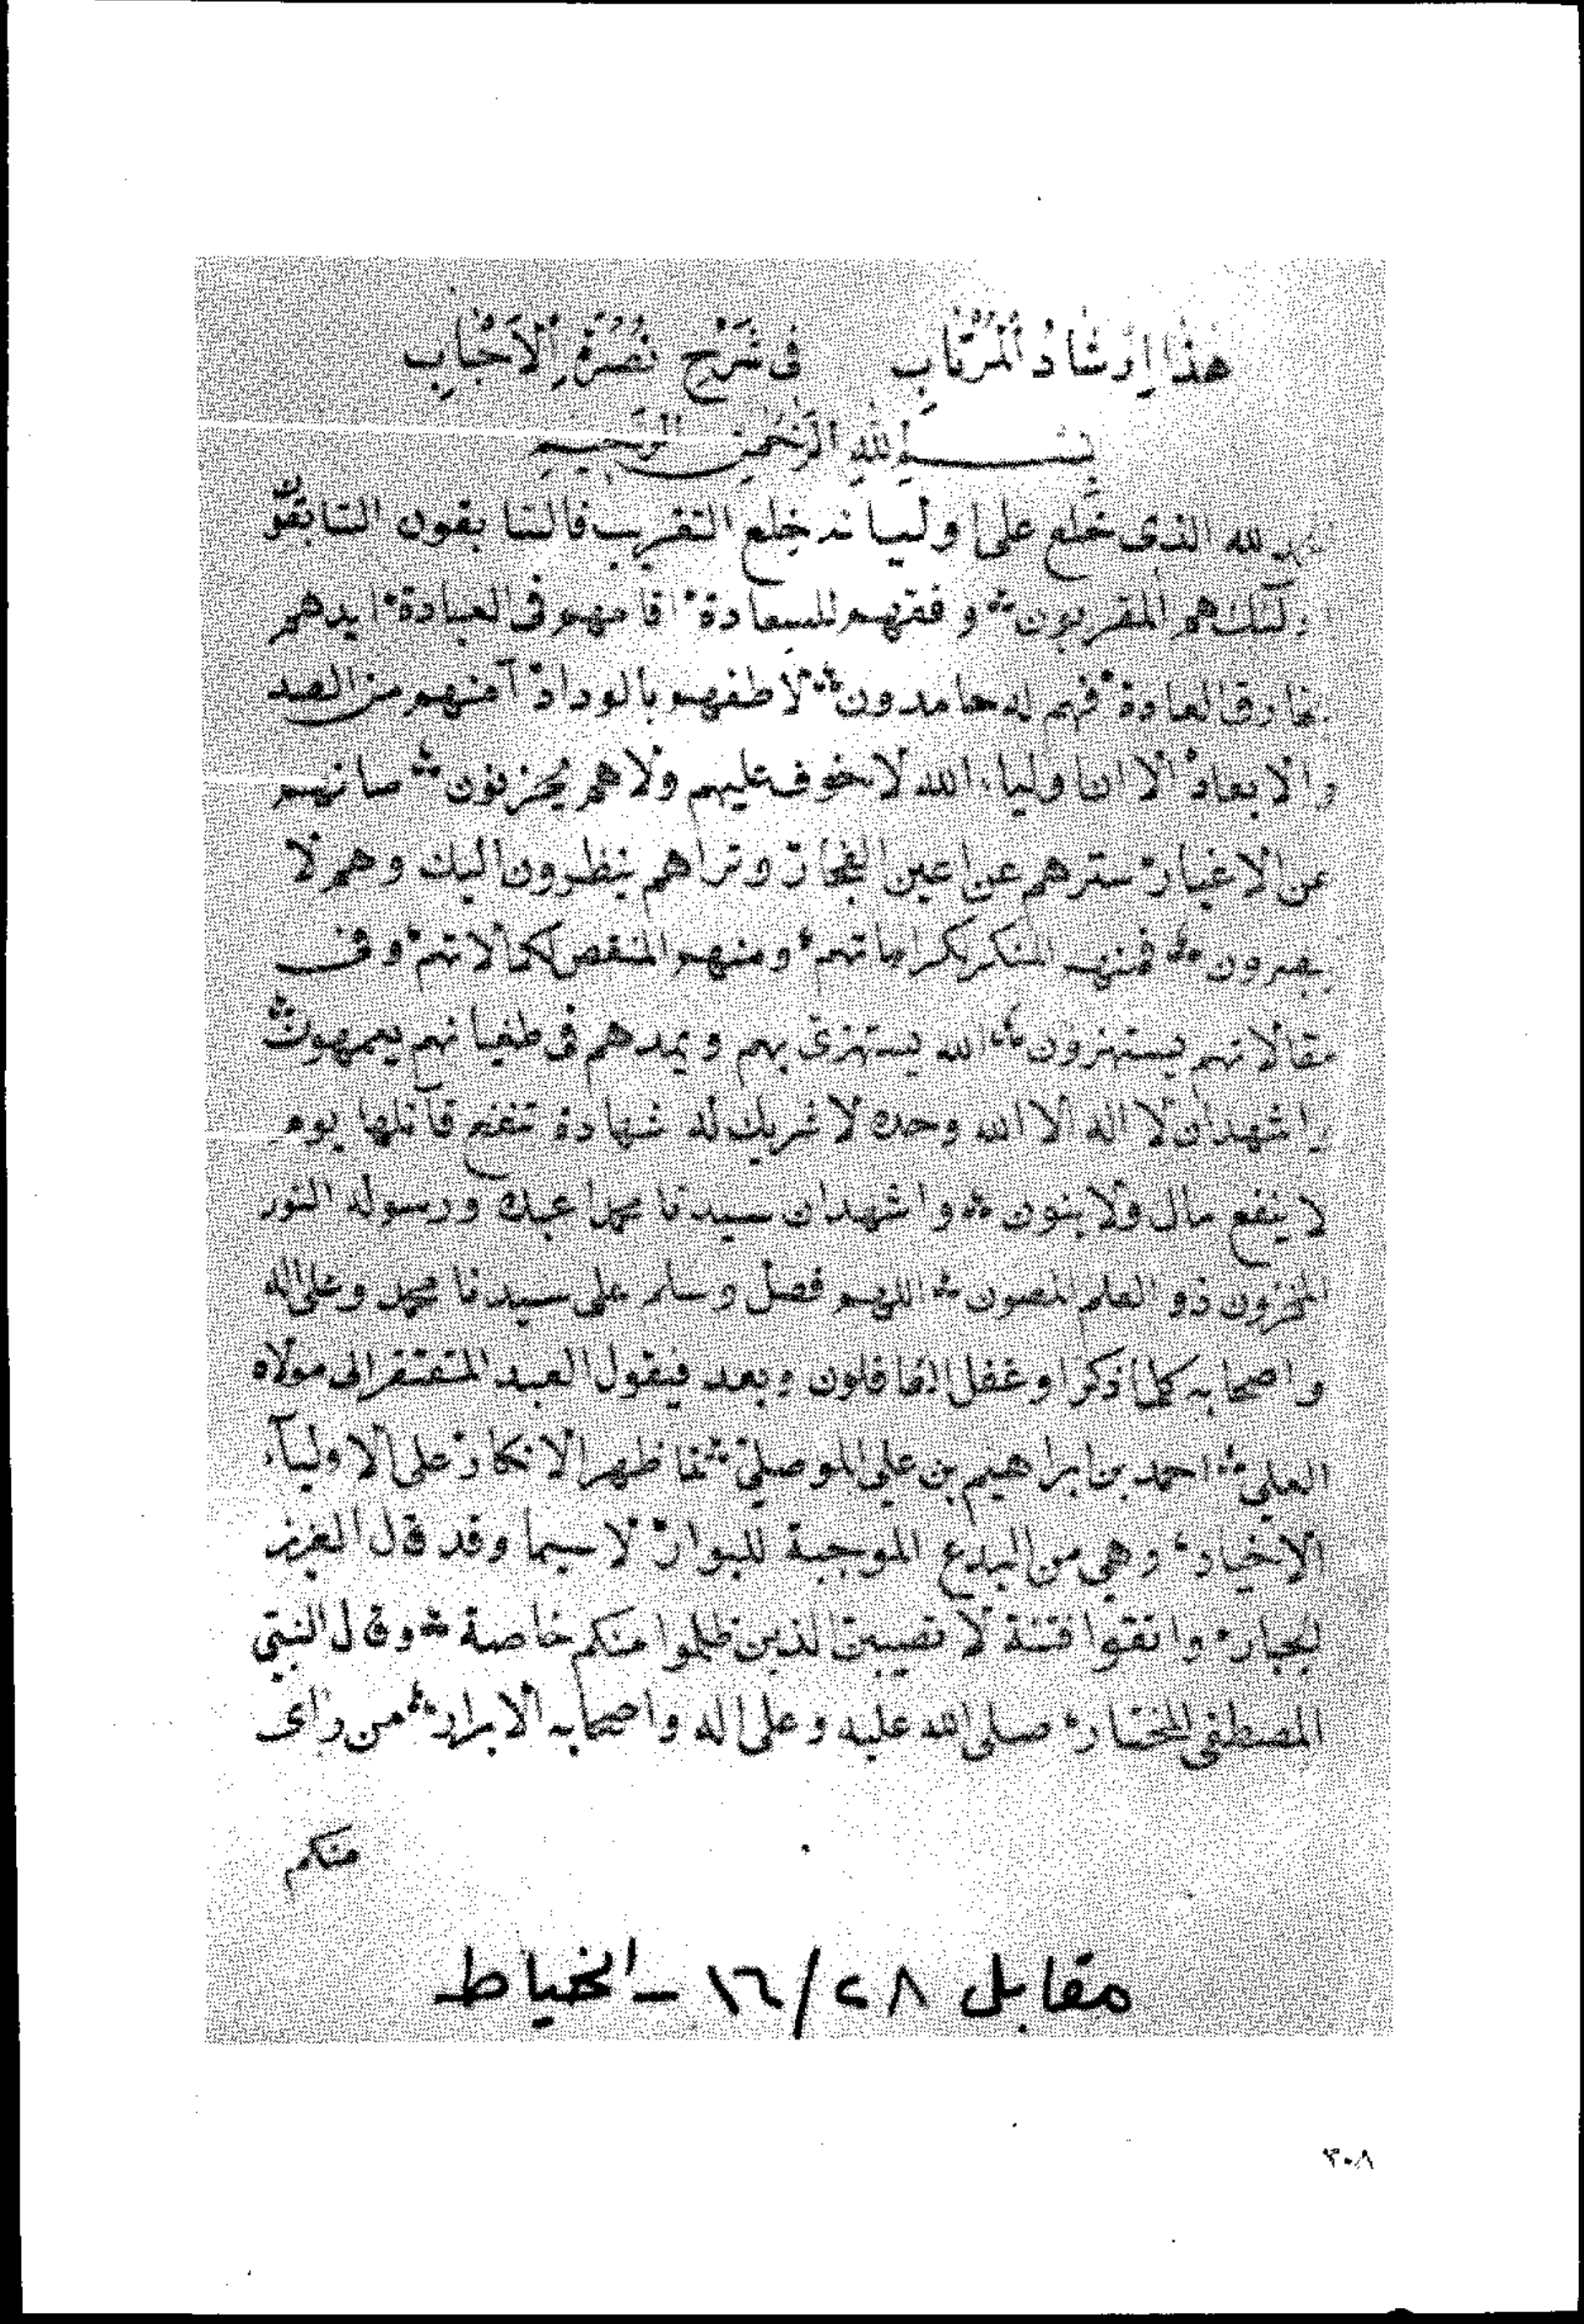 هَذَا إِرْشَادُ الْمُرْتَابِ فِى شَرْحِ نُصْرَةِ الْاَحْبَابِ
بِسْمِ اللهِ الرَّحْمٰنِ الرَّحِيمِ
لله الذى خلع على اوليائه خلع التقريب فالسابقون السابقون
اولئك هم المقربون وفقهم للسعادة اقامهم فى العبادة ايدهم
بخارق العادة فهم له حامدون لاطفهم بالوداد آمنهم من الصد
والابعاد الا ان اولياء الله لا خوف عليهم ولا هم يحزنون صانهم
عن الاغيار سترهم عن اعين الفجار وتراهم ينظرون اليك وهم لا
يبصرون فمنهم المنكر بكراماتهم ومنهم المنقص لكمالاتهم وفى
مقالاتهم يستهزون الله يستهزئ بهم ويمدهم فى طغيانهم يعمهون
واشهد ان لا اله الا الله وحده لا شريك له شهادة تنفع قائلها يوم
لا ينفع مال ولا بنون واشهد ان سيدنا محمدا عبده ورسوله النور
المخزون ذو العلم المصون اللهم فصل وسلم على سيدنا محمد وعلى اله
واصحابه كلما ذكر او غفل الغافلون وبعد فيقول العبد المتفقر الى مولاه
العلى احمد بن ابراهيم بن على الموصلى لما ظهر الانكار على الاوليآء
الاخيار وهى من البدع الموجبة للبوار لا سيما وقد قال العزيز
الجبار واتقوا فتنة لا تصيبن الذين ظلموا منكم خاصة وقال النبى
المصطفى المختار صلى الله عليه وعلى اله واصحابه الابرار من راى
منكم
مقابل ٢٨/١٦ - الخياط
٣٠٨